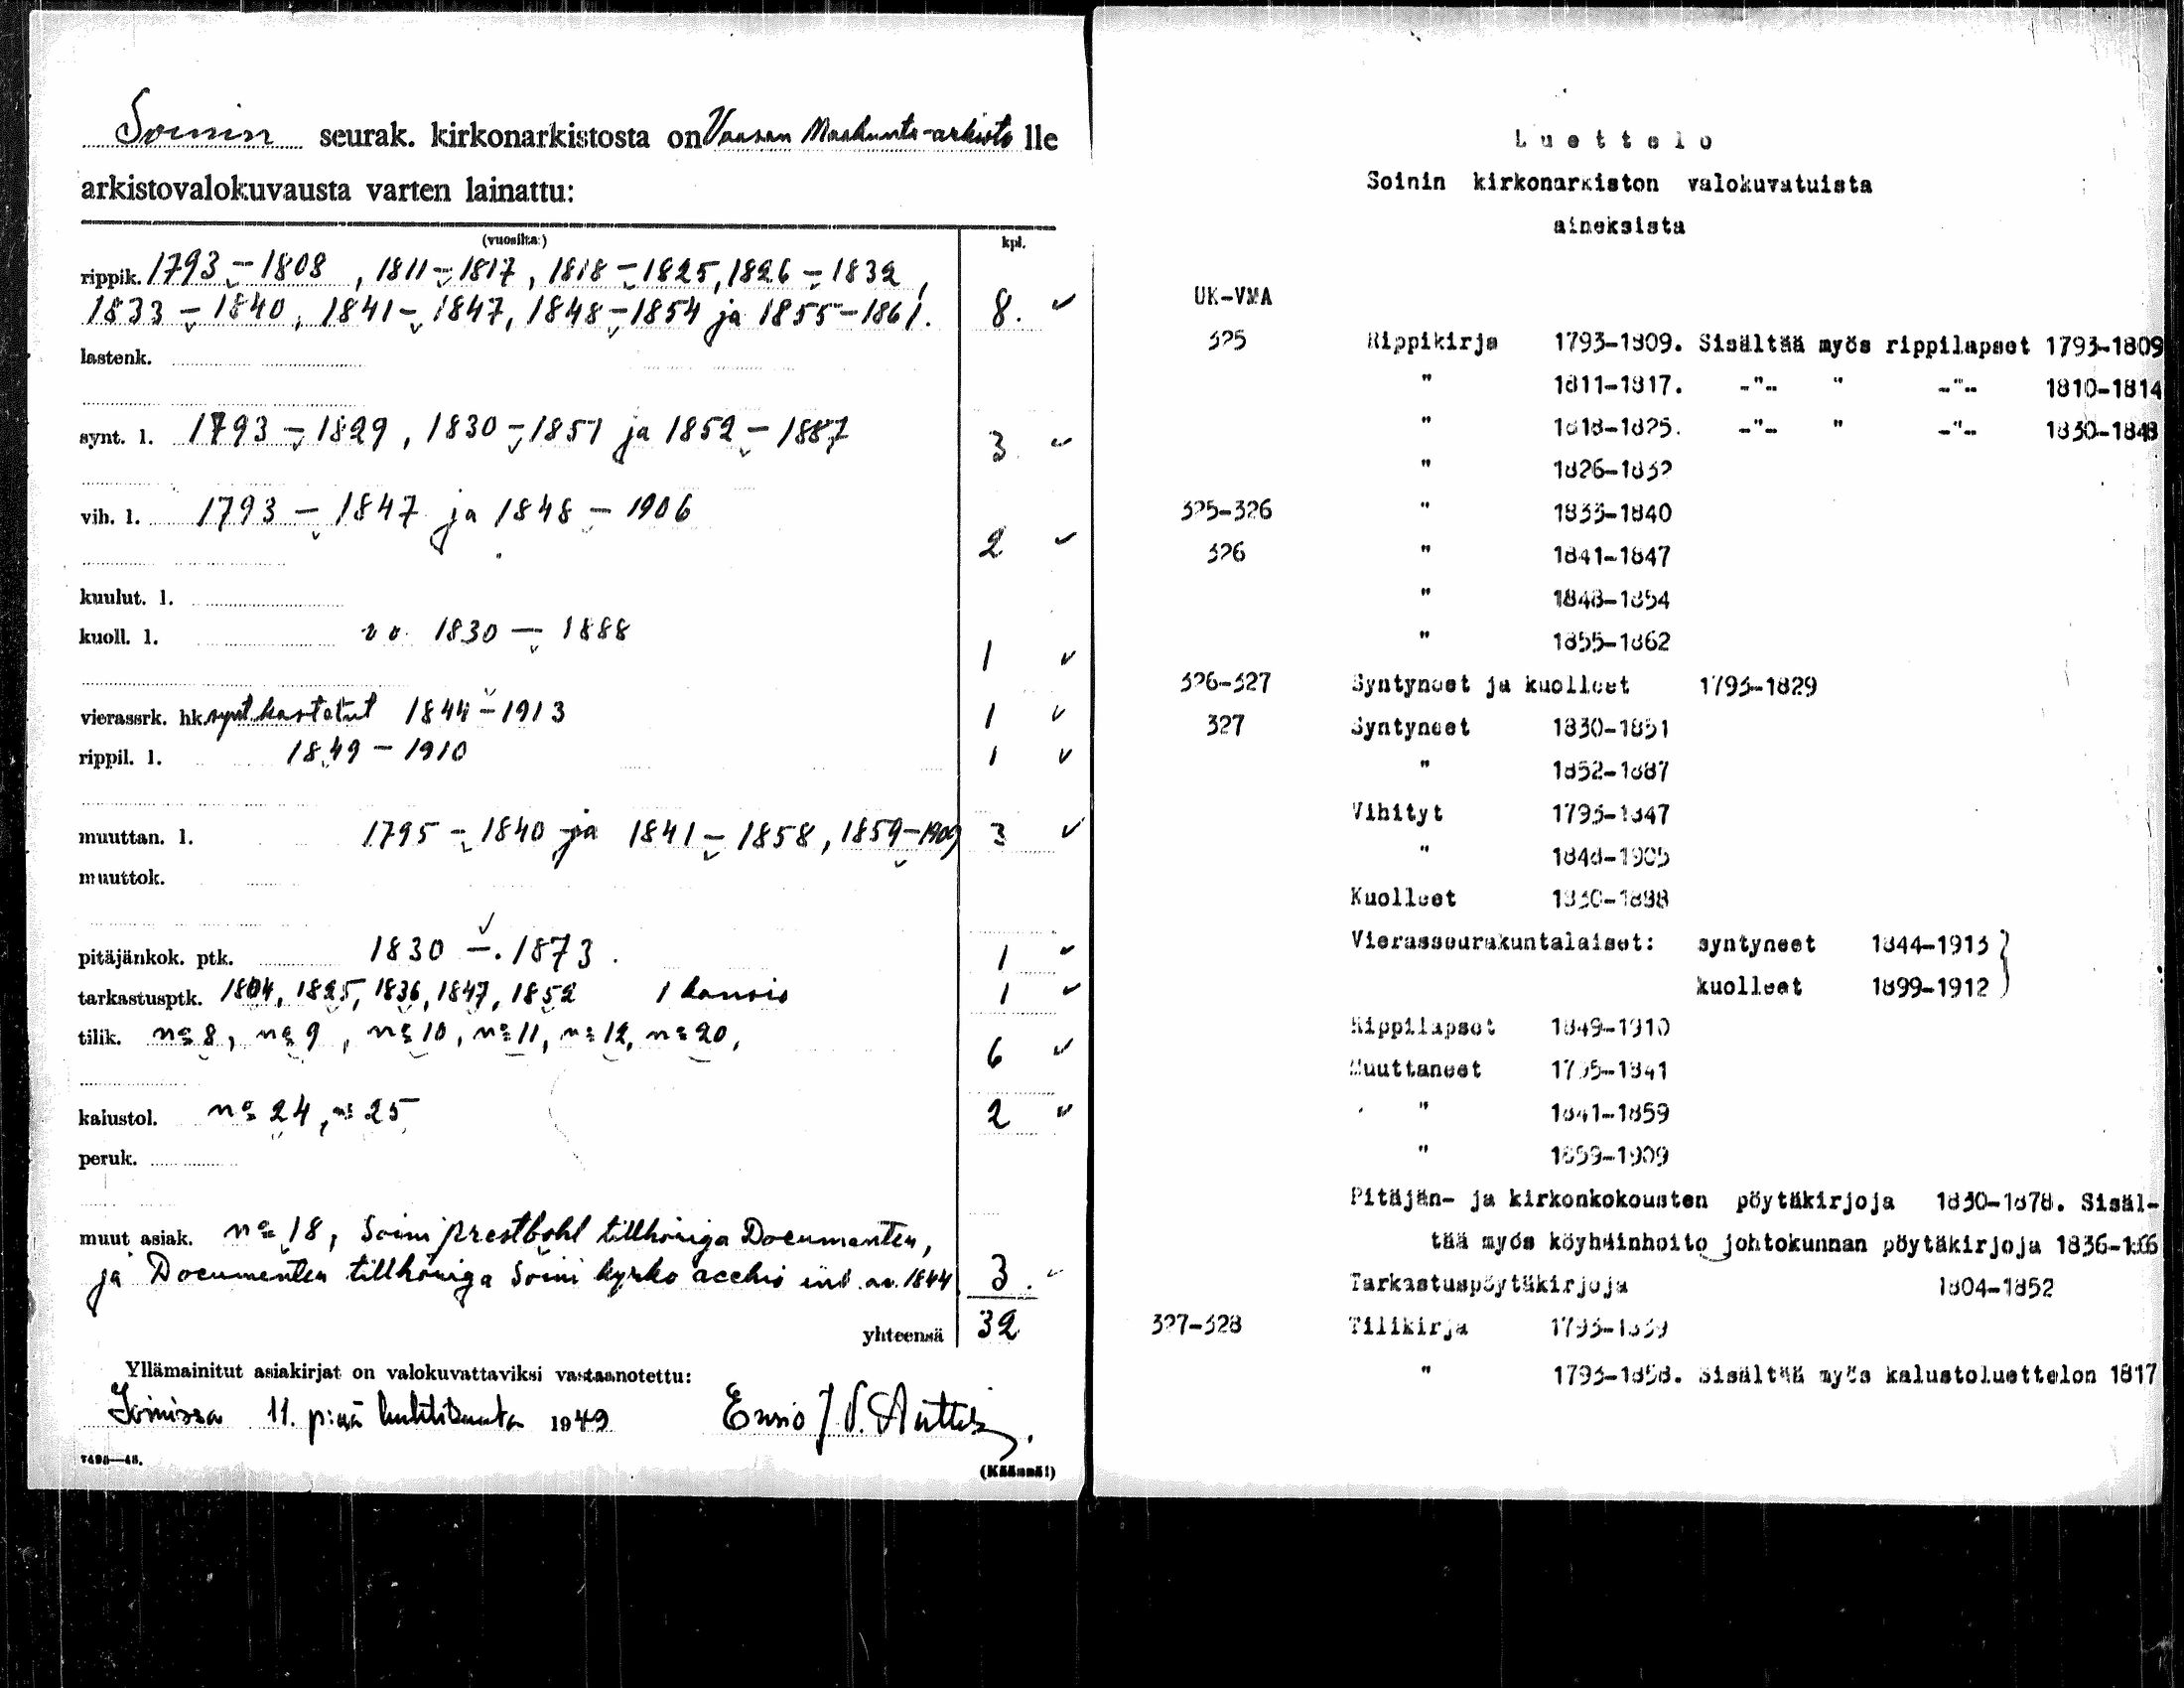 Soinin seurak. kirkonarkistosta on Vaasan Maakunta-arkisto lle
arkistovalokuvausta varten lainattu:
(vuosilta:) kpl.
rippik. 1793 – 1808, 1811 – 1817, 1818 – 1825, 1826 – 1832,
1833 – 1840, 1841 – 1847, 1848 – 1854 ja 1855 – 1861. 8.
lastenk.
synt. l. 1793 – 1829, 1830 – 1851 ja 1852 – 1887 3
vih. l. 1793 – 1847 ja 1848 – 1906 2
kuulut. l.
kuoll. l. vv. 1830 – 1888 1
vierassrk. hk. synt. kastetut 1844 – 1913 1
rippil. l. 1849 – 1910 1
muuttan. l. 1795 – 1840 ja 1841 – 1858, 1859 – 1909 3
muuttok.
pitäjänkok. ptk. 1830 – 1873. 1
tarkastusptk. 1804, 1825, 1836, 1847, 1852 1 kansio 1
tilik. no 8, no 9, no 10, no 11, no 12, no 20, 6
kalustol. no 24, no 25 2
peruk.
muut asiak. no 18, Soini prestbohl tillhöriga Documenten,
ja Documenten tillhöriga Soini kyrko 1844 3.
yhteensä 32
Yllämainitut asiakirjat on valokuvattaviksi vastaanotettu:
Soinissa 11. p:nä huhtikuuta 1949
7498—48.
(Käännä!)
Luettelo
Soinin kirkonarkiston valokuvatuista
aineksista
UK-VMA
325 Rippikirja 1793-1809. Sisältää myös rippilapset 1793-1809
" 1811-1817. -"- " -"- 1810-1814
" 1818-1825. -"- " -"- 1830-1848
" 1826-1832
325-326 " 1833-1840
326 " 1841-1847
" 1848-1854
" 1855-1862
326-327 Syntyneet ja kuolleet 1793-1829
327 Syntyneet 1830-1851
" 1852-1887
Vihityt 1793-1847
" 1848-1905
Kuolleet 1830-1888
Vierasseurakuntalaiset: syntyneet 1844-1913
kuolleet 1899-1912
Rippilapset 1849-1910
Muuttaneet 1795-1841
" 1841-1859
" 1859-1909
Pitäjän- ja kirkonkokousten pöytäkirjoja 1830-1878. Sisäl-
tää myös köyhäinhoito johtokunnan pöytäkirjoja 1836-1866
Tarkastuspöytäkirjoja 1804-1852
327-328 Tilikirja 1793-1839
" 1793-1858. Sisältää myös kalustoluettelon 1817